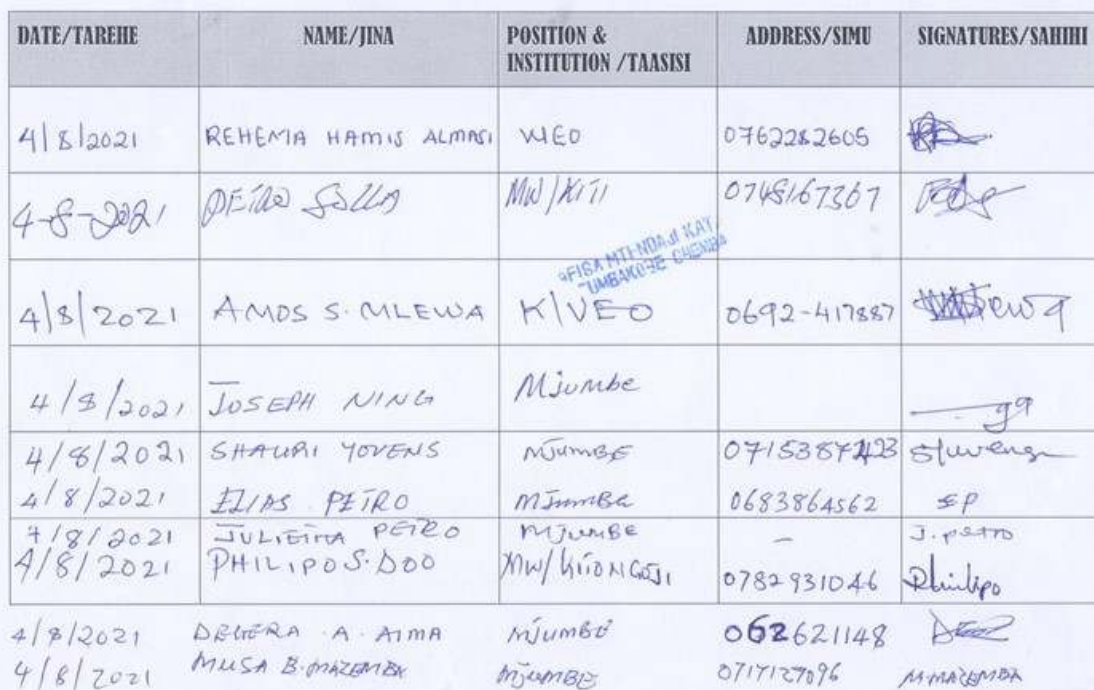 DATE/TAREHE NAME/JINA POSITION & INSTITUTION /TAASISI ADDRESS/SIMU SIGNATURES/SAHIHI
4/8/2021 REHEMA HAMIS ALMASI WEO 0762282605
4-8-2021 PETRO SULLA MW/KITI 0748167367
OFISA MTENDAJI KATA
TUMBAKOSE CHEMBA
4/8/2021 AMOS S. MLEWA K/VEO 0692-417887
4/8/2021 JOSEPH NING Mjumbe
4/8/2021 SHAURI YOVENS MJUMBE
4/8/2021 ELIAS PETRO MJUMBE 0683864562 EP
4/8/2021 JULIETHA PETRO MJUMBE - J.petro
4/8/2021 PHILIPO S. DOO MW/KITONGOJI 0782931046 Philipo
4/8/2021 A. MJUMBE 062621148
4/8/2021 MUSA B. MAZEMBA MJUMBE 0717127096 M.MAZEMBA